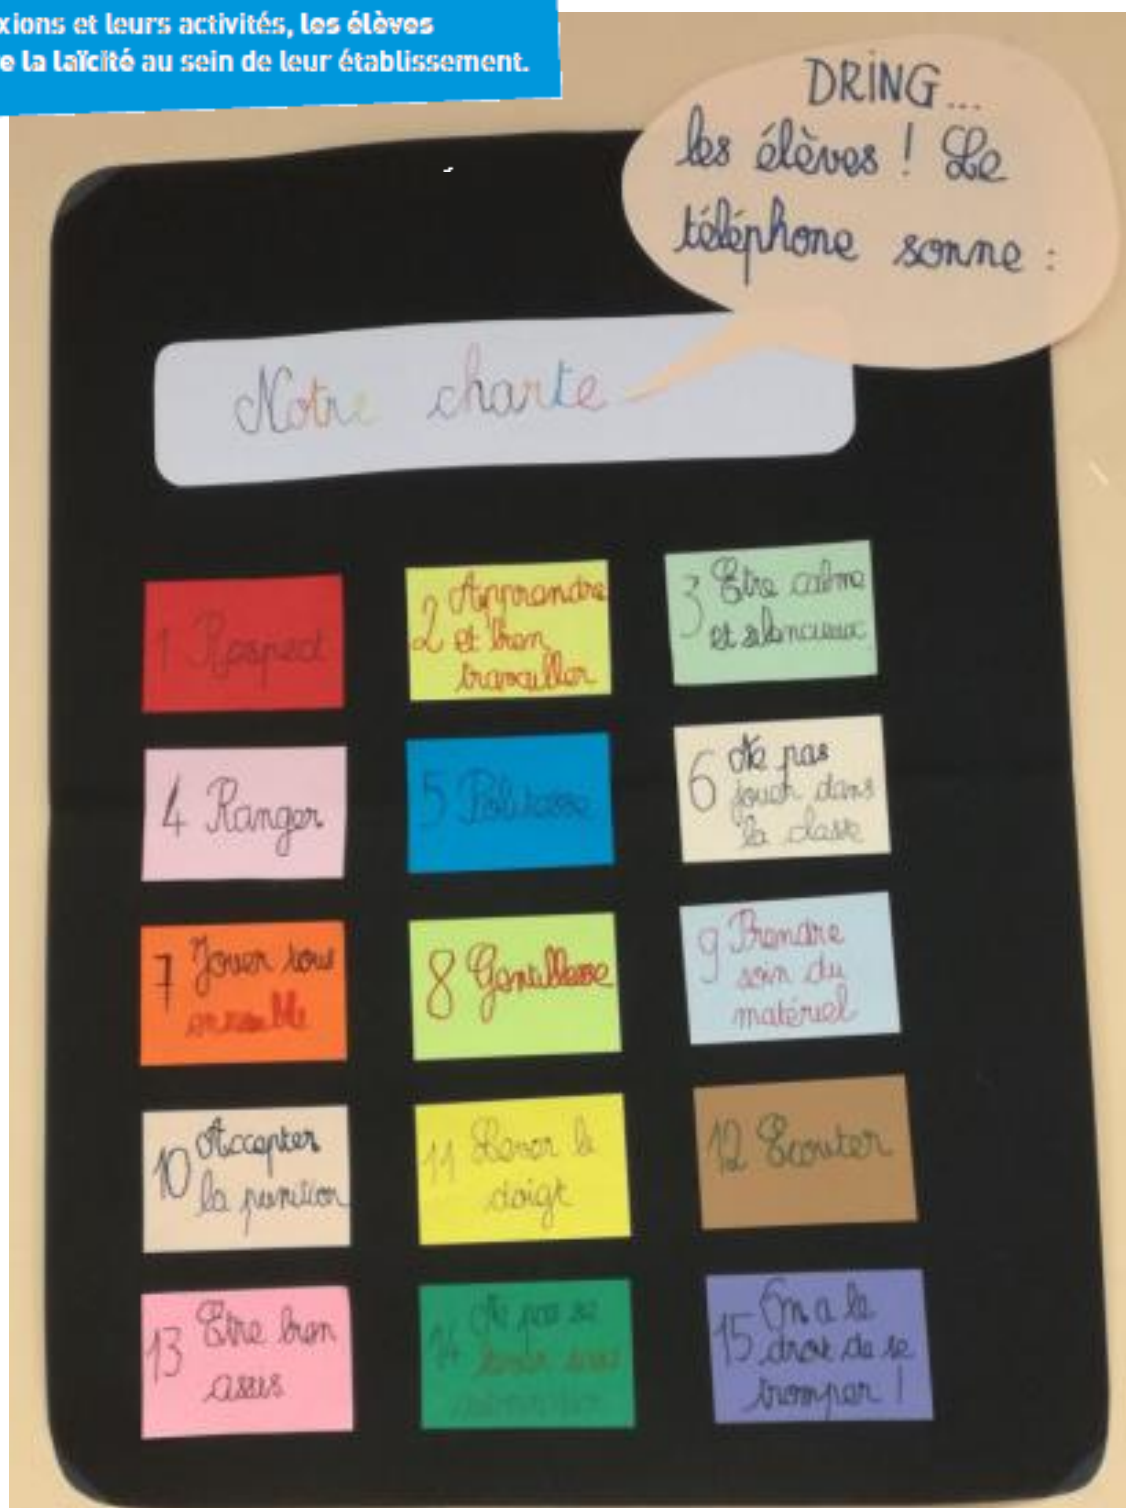 xions et leurs activités, les élèves
e la laïcité au sein de leur établissement.
DRING...
les élèves ! Le
téléphone sonne :
Notre charte
1 Respect
2 Apprendre
et bien
travailler
3 Etre calme
et silencieux
4 Ranger
5 Politesse
6 Ne pas
jouer dans
la classe
7 Jouer tous
ensemble
8 Gentillesse
9 Prendre
soin du
matériel
10 Accepter
la punition
11 Lever le
doigt
12 Ecouter
13 Etre bien
assis
14 Ne pas se
lever sans
15 On a le
droit de se
tromper !